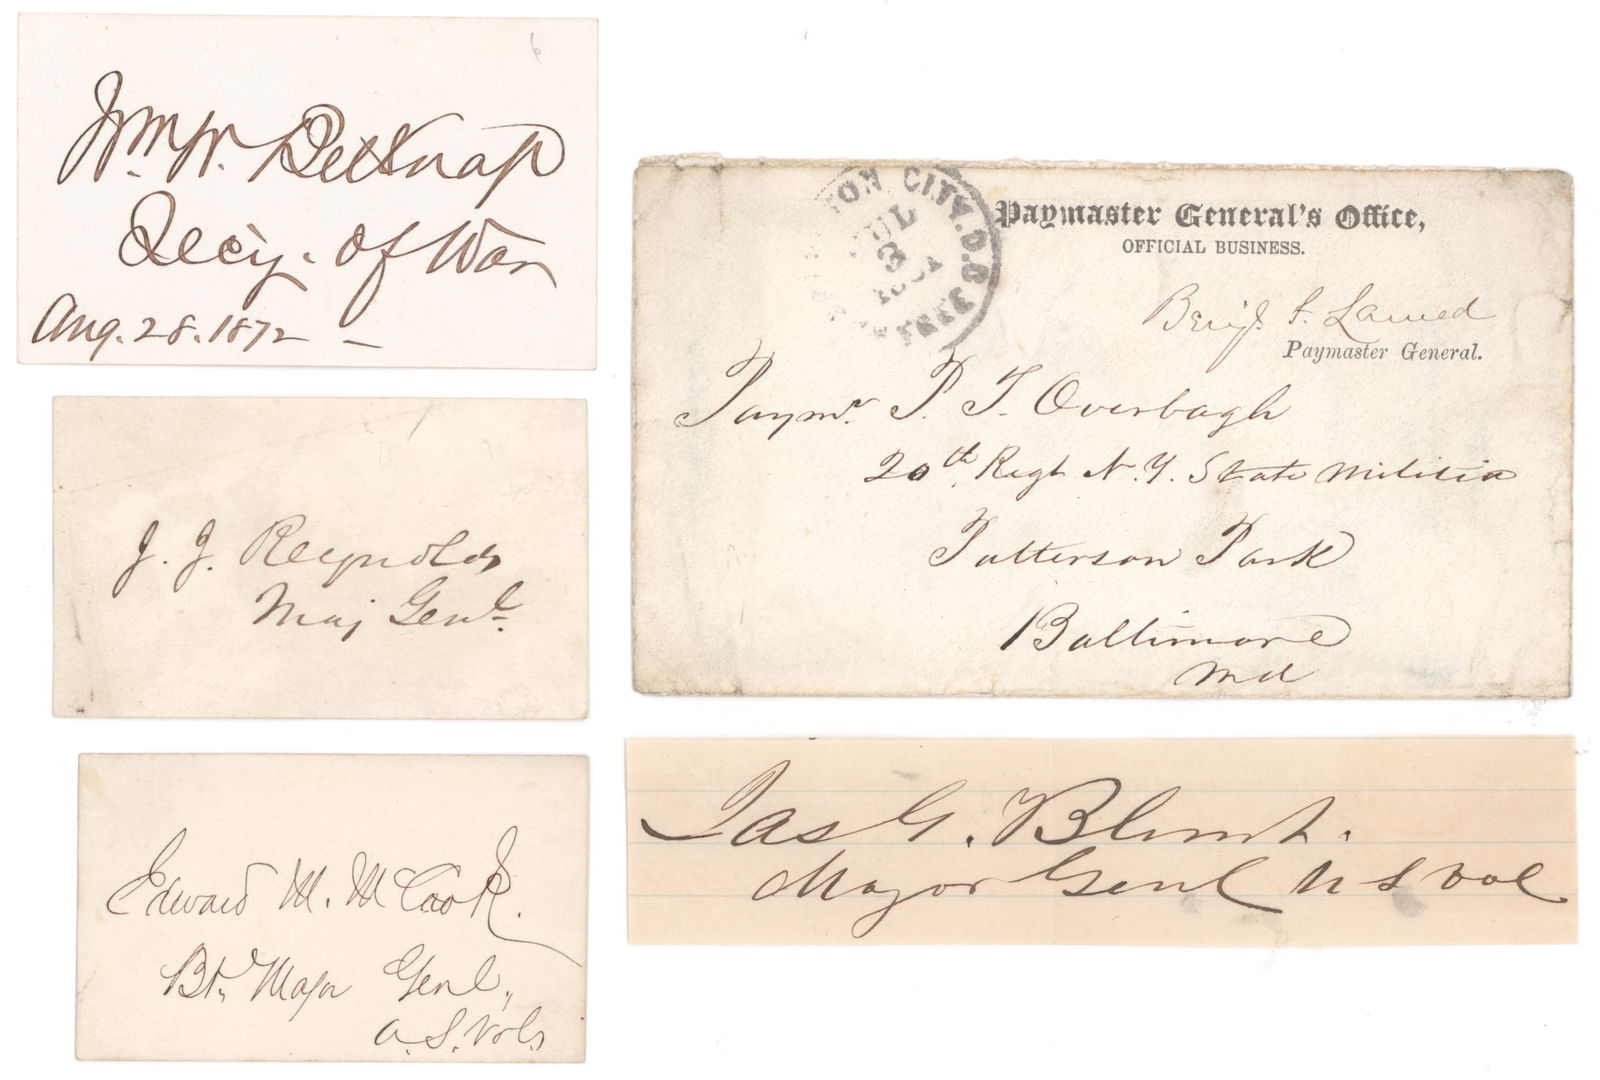 Wm. W. Belknap
Secy. of War
Aug. 28. 1872 —
J. J. Reynolds
Maj Genl.
Edward M. McCook.
Bt. Major Genl,
U. S. Vols
TON CITY. D.C.
JUL
3
FREE
Paymaster General's Office,
OFFICIAL BUSINESS.
Benj. F. Larned
Paymaster General.
Paymr. P. T. Overbagh
20th Regt N. Y. State Militia
Patterson Park
Baltimore
Md
Jas G. Blunt.
Major Genl U S Vol